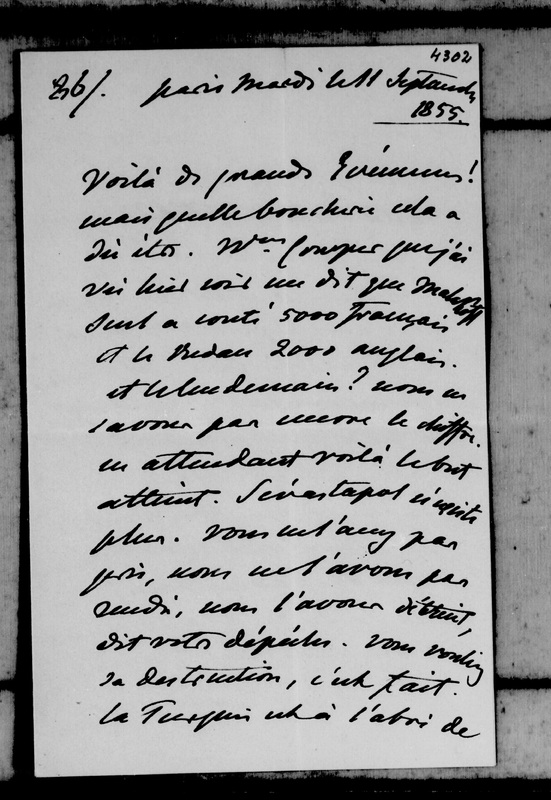 4302
26/. paris mardi le 11 Septembre
1855.
Voilà de grands Evénements!
mais quelle boucherie cela a
dû être. Wm Cowper que j'ai
vu hier soir me dit que Malakoff
seul a couté 5000 français
et le Redan 2000 anglais.
et le lendemain? nous ne
savons pas encore le chiffre.
en attendant voilà le but
atteint. Sévastopol n'existe
plus. vous ne l'avez pas
pris, nous ne l'avons pas
rendu, nous l'avons détruit,
dit votre dépêche. vous vouliez
sa destruction, c'est fait.
la Turquie est à l'abri de